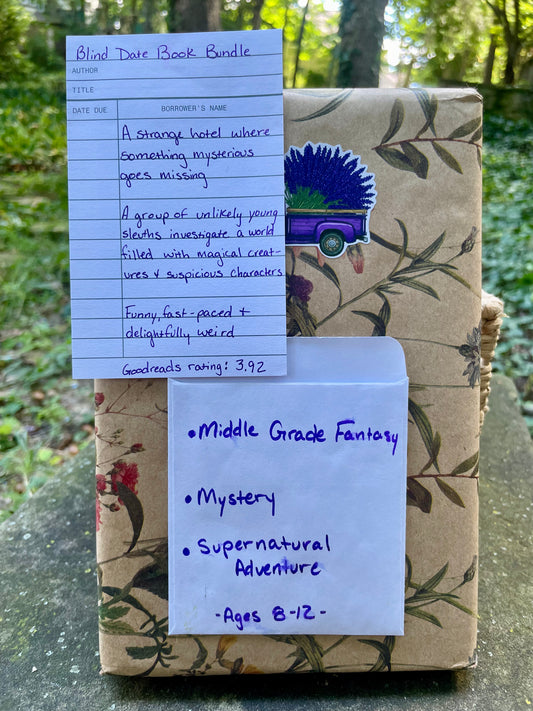 Blind Date Book Bundle
AUTHOR
TITLE
DATE DUE BORROWER'S NAME
A strange hotel where
something mysterious
goes missing
A group of unlikely young
sleuths investigate a world
filled with magical creat-
ures & suspicious characters
Funny, fast-paced +
delightfully weird
Goodreads rating: 3.92
• Middle Grade Fantasy
• Mystery
• Supernatural
Adventure
- Ages 8-12 -